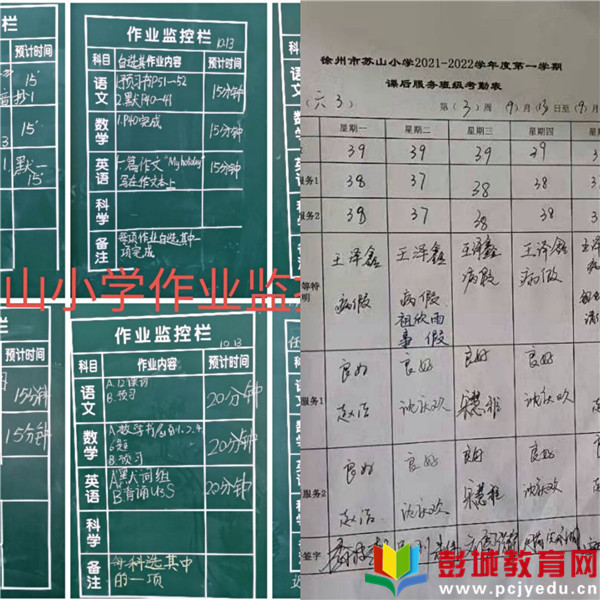 作业监控栏
10.13
科目 作业内容 预计时间
语文 自选其
1.预习书P51-52
2.默P40-41
15分钟
数学 1.P40完成 15分钟
英语 一篇作文"My holiday"
写在作文本上
15分钟
科学
备注 每项作业自选其中一
项完成
预计时间
15'
15'
1.默一
15'
山小学作业监
作业监控栏
10.13
科目 作业内容 预计时间
语文 A.12课词
B.预习
20分钟
数学
B.预习
20分钟
英语 A.默大词组
B.背诵U3S
20分钟
科学
备注 每科选其中
的一项
预计时间
15分钟
15分钟
徐州市苏山小学2021-2022学年度第一学期
课后服务班级考勤表
(六3) 第(3)周(9)月(13)日至(9)月
星期一 星期二 星期三 星期四
39 39 39 39 3
服务1 38 37 38 38 37
服务2 38 37 38 38
等特
明
王泽鑫 王泽鑫 王泽鑫 王泽鑫
病假 病假 病假 病假
祖欣雨
事假
服务1 良好 良好 良好 良好
赵洁 沈庆欢 宋慧雅 沈庆欢
服务2 良好 良好 良好 良好
赵洁 沈庆欢 宋慧雅 沈庆欢
签字
彭城教育网
www.pcjyedu.cn